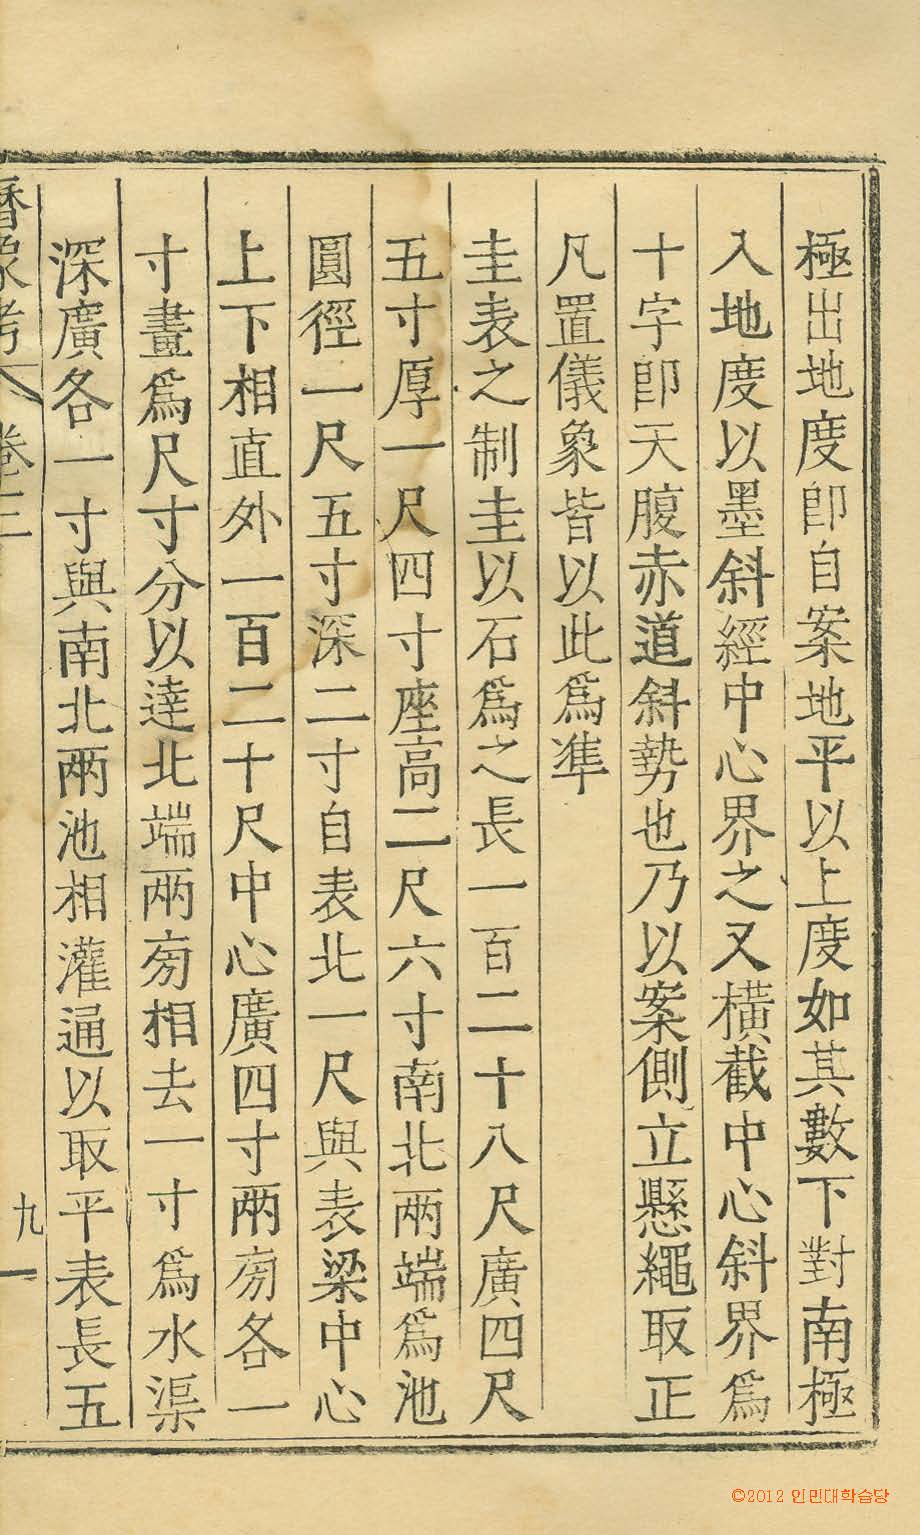 極出地度卽自案地平以上度如其數下對南極
入地度以墨斜經中心界之又橫截中心斜界爲
十字卽天腹赤道斜勢也乃以案側立懸繩取正
凡置儀象皆以此爲準
圭表之制圭以石爲之長一百二十八尺廣四尺
五寸厚一尺四寸座高二尺六寸南北兩端爲池
圓徑一尺五寸深二寸自表北一尺與表梁中心
上下相直外一百二十尺中心廣四寸兩旁各一
寸畫爲尺寸分以達北端兩旁相去一寸爲水渠
深廣各一寸與南北兩池相灌通以取平表長五
曆象考 卷三
九
©2012 인민대학습당